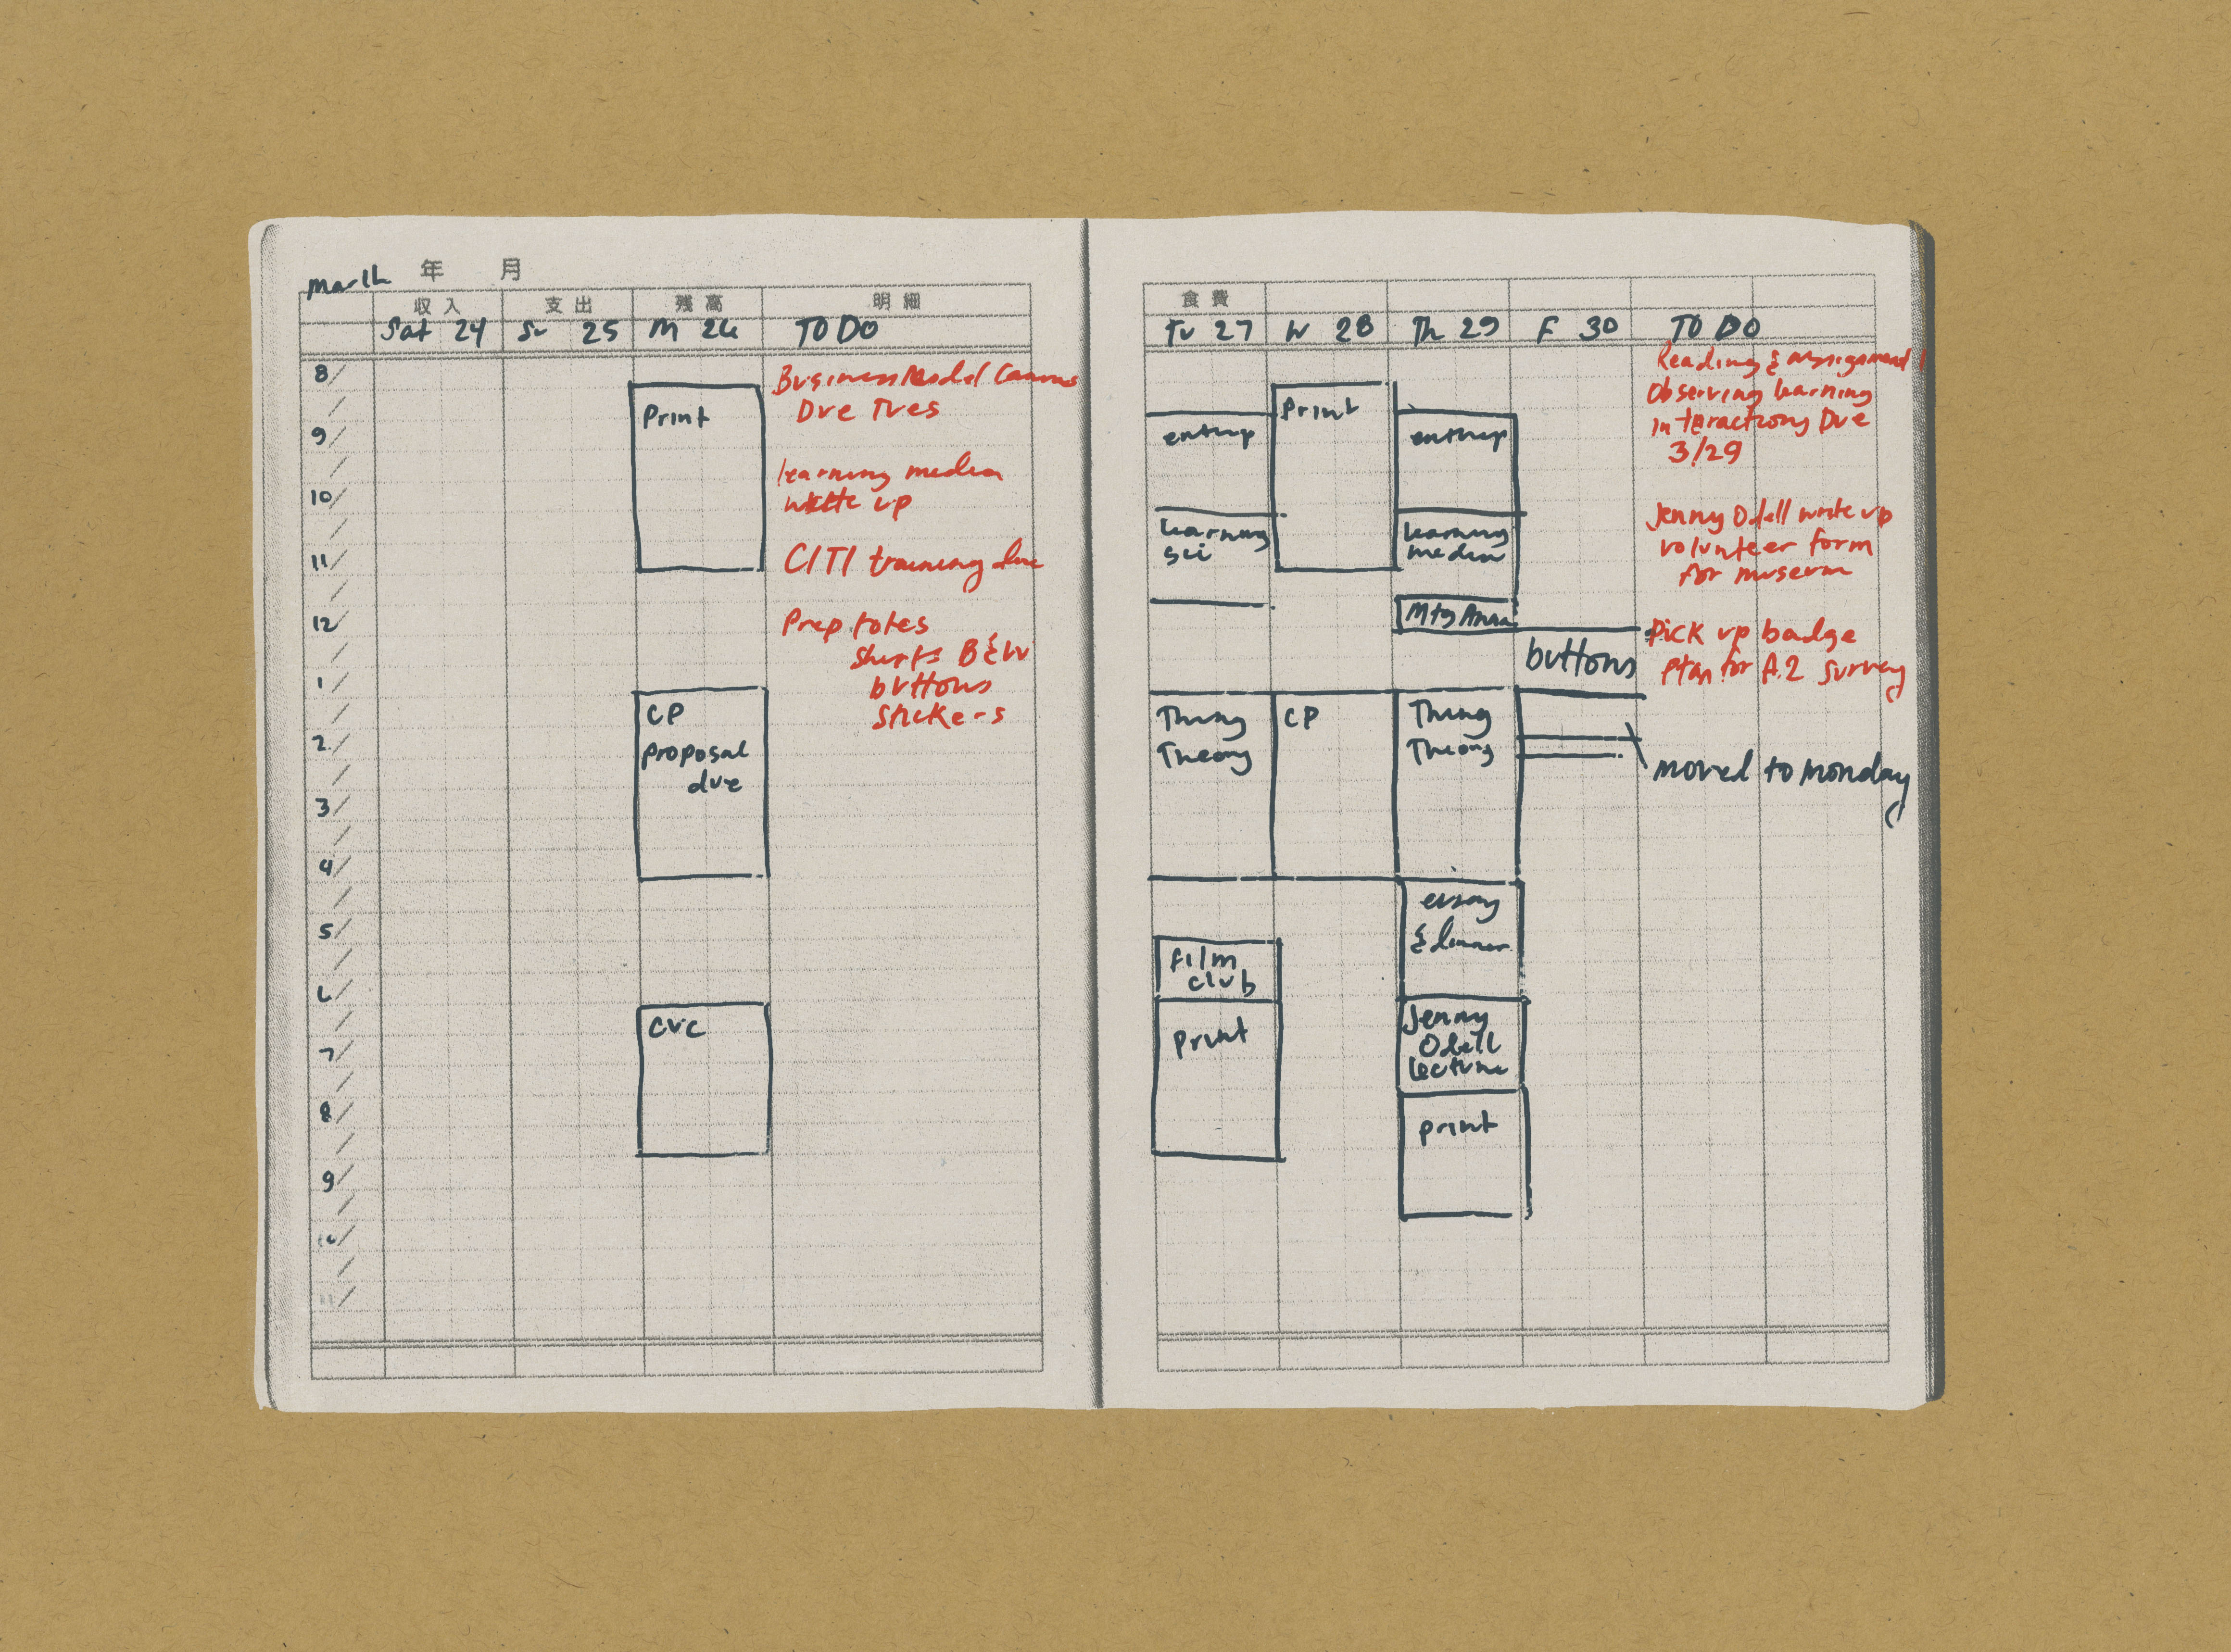 March 年 月
収入 支出 残高 明細
Sat 24 Su 25 M 26 TO DO
8
9
10
11
12
1
2
3
4
5
6
7
8
9
10
11
Print
CP
proposal
due
CVC
Business Model Canvas
Due Tues
learning media
write up
CITI training due
Prep totes
shirts B&W
buttons
stickers
食費
Tu 27 W 28 Th 29 F 30 TO DO
entrep
learning
sci
Thing
Theory
film
club
print
Print
CP
entrep
learning
media
Mtg Anna
Thing
Theory
& dinner
Jenny
Odell
lecture
print
buttons
Reading & assignment 1
Observing learning
interactions Due
3/29
Jenny Odell write up
volunteer form
for museum
Pick up badge
plan for A.2 survey
moved to monday